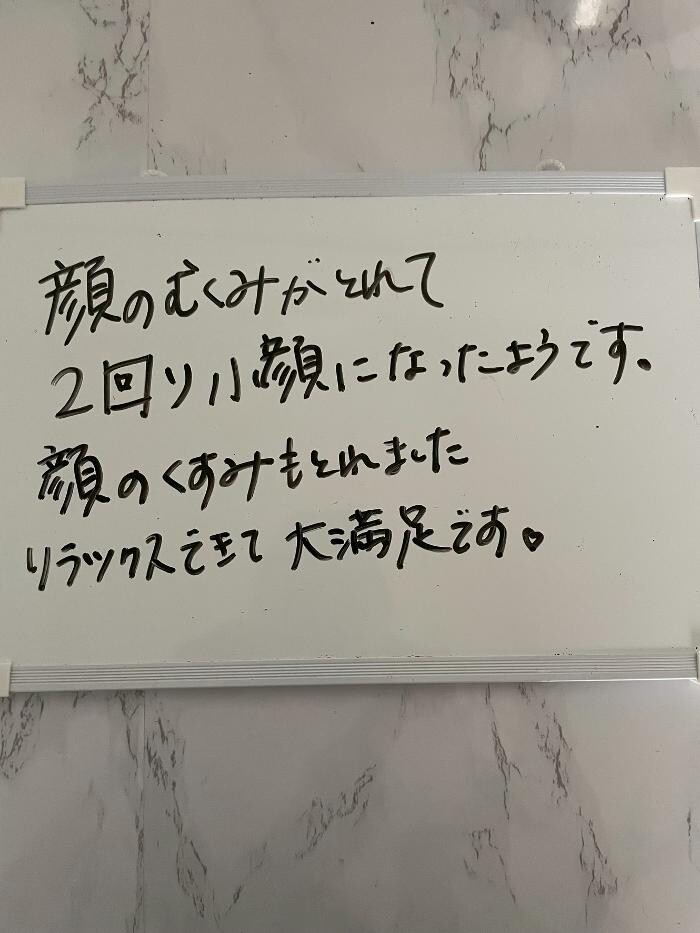 顔のむくみがとれて
2回り小顔になったようです。
顔のくすみもとれました
リラックスできて大満足です♡